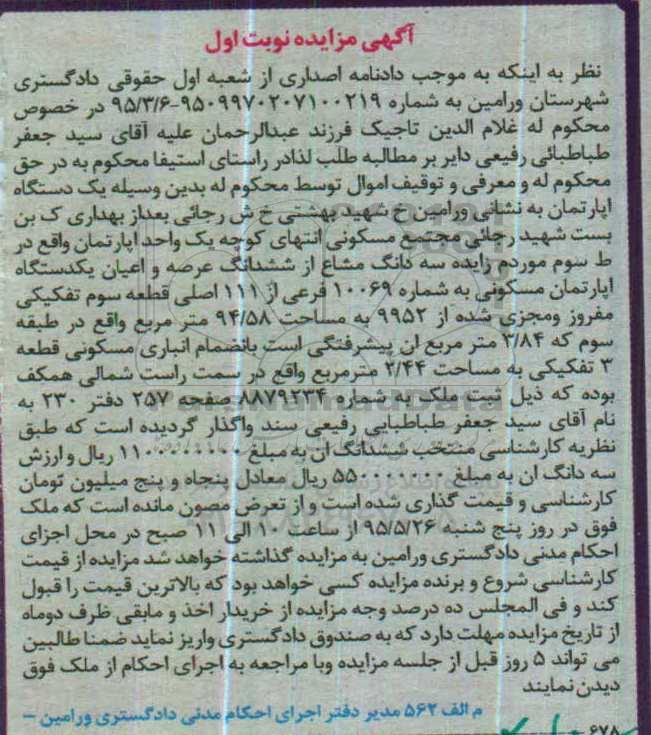 آگهی مزایده نوبت اول
نظر به اینکه به موجب دادنامه اصداری از شعبه اول حقوقی دادگستری
شهرستان ورامین به شماره ۹۵۰۹۹۷۰۲۰۷۱۰۰۲۱۹-۹۵/۳/۶ در خصوص
محکوم له غلام الدین تاجیک فرزند عبدالرحمان علیه آقای سید جعفر
طباطبائی رفیعی دایر بر مطالبه طلب لذادر راستای استیفا محکوم به در حق
محکوم له و معرفی و توقیف اموال توسط محکوم له بدین وسیله یک دستگاه
اپارتمان به نشانی ورامین خ شهید بهشتی خ ش رجائی بعداز بهداری ک بن
بست شهید رجائی مجتمع مسکونی انتهای کوچه یک واحد اپارتمان واقع در
ط سوم موردم زایده سه دانگ مشاع از ششدانگ عرصه و اعیان یکدستگاه
اپارتمان مسکونی به شماره ۱۰۰۶۹ فرعی از ۱۱۱ اصلی قطعه سوم تفکیکی
مفروز ومجزی شده از ۹۹۵۲ به مساحت ۹۴/۵۸ متر مربع واقع در طبقه
سوم که ۳/۸۴ متر مربع ان پیشرفتگی است بانضمام انباری مسکونی قطعه
۳ تفکیکی به مساحت ۲/۴۴ مترمربع واقع در سمت راست شمالی همکف
بوده که ذیل ثبت ملک به شماره ۸۸۷۹۲۳۴ صفحه ۲۵۷ دفتر ۲۳۰ به
نام آقای سید جعفر طباطبایی رفیعی سند واگذار گردیده است که طبق
نظریه کارشناسی منتخب ششدانگ ان به مبلغ ۱۱۰۰۰۰۰۰۰۰ ریال و ارزش
سه دانگ ان به مبلغ ۵۵۰۰۰۰۰۰۰ ریال معادل پنجاه و پنج میلیون تومان
کارشناسی و قیمت گذاری شده است و از تعرض مصون مانده است که ملک
فوق در روز پنج شنبه ۹۵/۵/۲۶ از ساعت ۱۰ الی ۱۱ صبح در محل اجزای
احکام مدنی دادگستری ورامین به مزایده گذاشته خواهد شد مزایده از قیمت
کارشناسی شروع و برنده مزایده کسی خواهد بود که بالاترین قیمت را قبول
کند و فی المجلس ده درصد وجه مزایده از خریدار اخذ و مابقی ظرف دوماه
از تاریخ مزایده مهلت دارد که به صندوق دادگستری واریز نماید ضمنا طالبین
می تواند ۵ روز قبل از جلسه مزایده وبا مراجعه به اجرای احکام از ملک فوق
دیدن نمایند
م الف ۵۶۲ مدیر دفتر اجرای احکام مدنی دادگستری ورامین –
۶۷۸